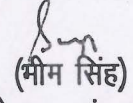 (भीम सिंह)